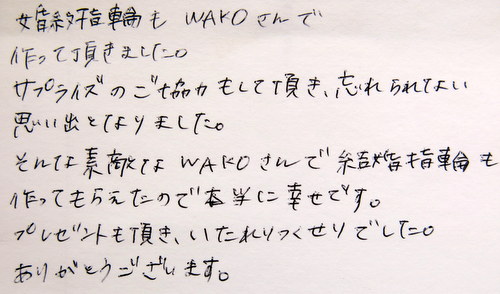 婚約指輪も WAKOさんで
作って頂きました。
サプライズのご協力もして頂き、忘れられない
思い出となりました。
そんな素敵な WAKOさんで 結婚指輪も
作ってもらえたので本当に幸せです。
プレゼントも頂き、いたれりつくせりでした。
ありがとうございます。